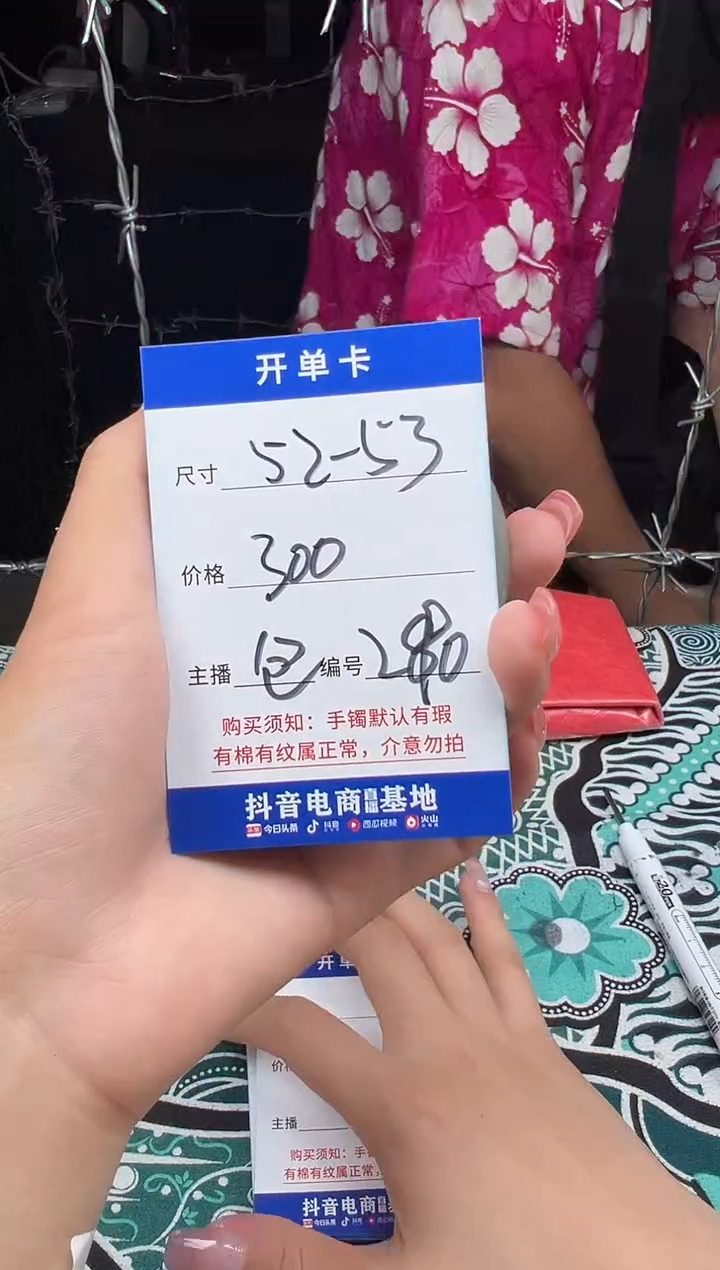 开单卡
尺寸 52-53
价格 300
主播 包 编号 280
购买须知：手镯默认有瑕
有棉有纹属正常，介意勿拍
抖音电商直播基地
头条 今日头条 抖音 西瓜视频 火山
开单
价格
主播
购买须知：手
有棉有纹属正常，
抖音电商
今日头条